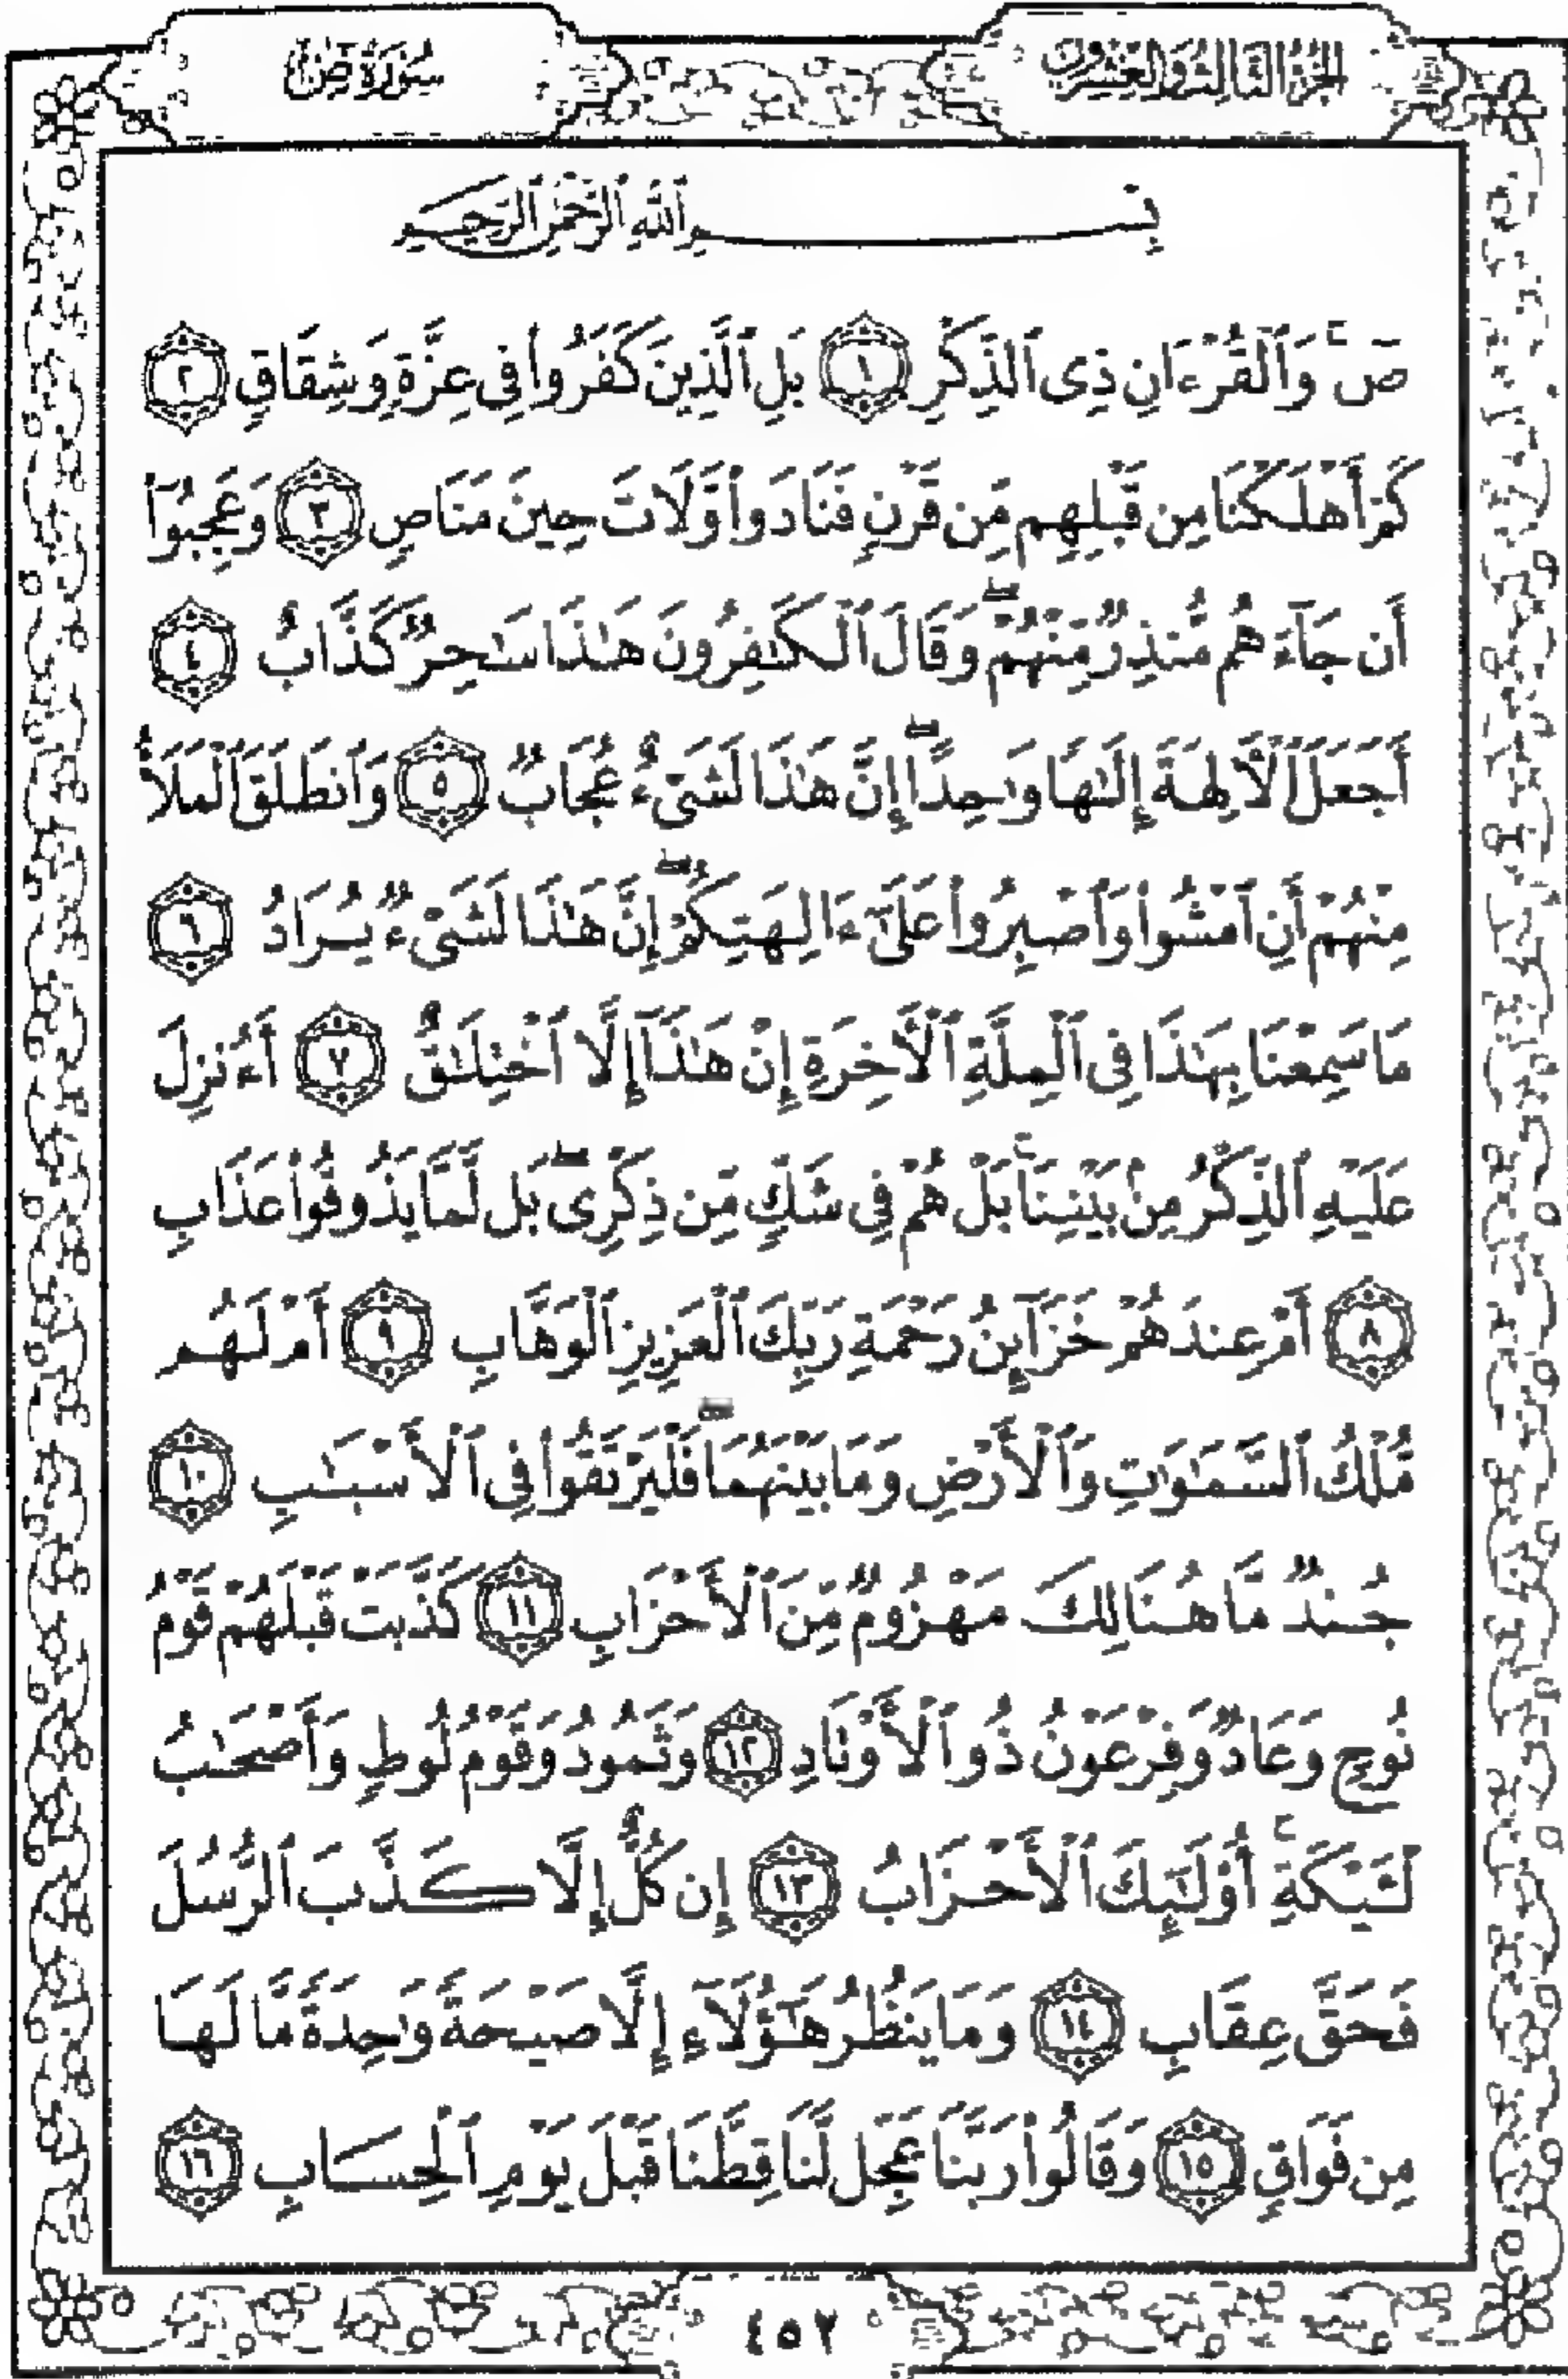 الجزء الثالث والعشرون
سورة ص
بِسْمِ ٱللَّهِ ٱلرَّحْمَٰنِ ٱلرَّحِيمِ
صٓ ۚ وَٱلْقُرْءَانِ ذِى ٱلذِّكْرِ ١ بَلِ ٱلَّذِينَ كَفَرُوا۟ فِى عِزَّةٍ وَشِقَاقٍ ٢
كَمْ أَهْلَكْنَا مِن قَبْلِهِم مِّن قَرْنٍ فَنَادَوا۟ وَّلَاتَ حِينَ مَنَاصٍ ٣ وَعَجِبُوٓا۟
أَن جَآءَهُم مُّنذِرٌ مِّنْهُمْ ۖ وَقَالَ ٱلْكَٰفِرُونَ هَٰذَا سَٰحِرٌ كَذَّابٌ ٤
أَجَعَلَ ٱلْءَالِهَةَ إِلَٰهًا وَٰحِدًا ۖ إِنَّ هَٰذَا لَشَىْءٌ عُجَابٌ ٥ وَٱنطَلَقَ ٱلْمَلَأُ
مِنْهُمْ أَنِ ٱمْشُوا۟ وَٱصْبِرُوا۟ عَلَىٰٓ ءَالِهَتِكُمْ ۖ إِنَّ هَٰذَا لَشَىْءٌ يُرَادُ ٦
مَا سَمِعْنَا بِهَٰذَا فِى ٱلْمِلَّةِ ٱلْءَاخِرَةِ إِنْ هَٰذَآ إِلَّا ٱخْتِلَٰقٌ ٧ أَءُنزِلَ
عَلَيْهِ ٱلذِّكْرُ مِنۢ بَيْنِنَا ۚ بَلْ هُمْ فِى شَكٍّ مِّن ذِكْرِى ۖ بَل لَّمَّا يَذُوقُوا۟ عَذَابِ
٨ أَمْ عِندَهُمْ خَزَآئِنُ رَحْمَةِ رَبِّكَ ٱلْعَزِيزِ ٱلْوَهَّابِ ٩ أَمْ لَهُم
مُّلْكُ ٱلسَّمَٰوَٰتِ وَٱلْأَرْضِ وَمَا بَيْنَهُمَا ۖ فَلْيَرْتَقُوا۟ فِى ٱلْأَسْبَٰبِ ١٠
جُندٌ مَّا هُنَالِكَ مَهْزُومٌ مِّنَ ٱلْأَحْزَابِ ١١ كَذَّبَتْ قَبْلَهُمْ قَوْمُ
نُوحٍ وَعَادٌ وَفِرْعَوْنُ ذُو ٱلْأَوْتَادِ ١٢ وَثَمُودُ وَقَوْمُ لُوطٍ وَأَصْحَٰبُ
لْـَٔيْكَةِ ۚ أُو۟لَٰٓئِكَ ٱلْأَحْزَابُ ١٣ إِن كُلٌّ إِلَّا كَذَّبَ ٱلرُّسُلَ
فَحَقَّ عِقَابِ ١٤ وَمَا يَنظُرُ هَٰٓؤُلَآءِ إِلَّا صَيْحَةً وَٰحِدَةً مَّا لَهَا
مِن فَوَاقٍ ١٥ وَقَالُوا۟ رَبَّنَا عَجِّل لَّنَا قِطَّنَا قَبْلَ يَوْمِ ٱلْحِسَابِ ١٦
٤٥٢